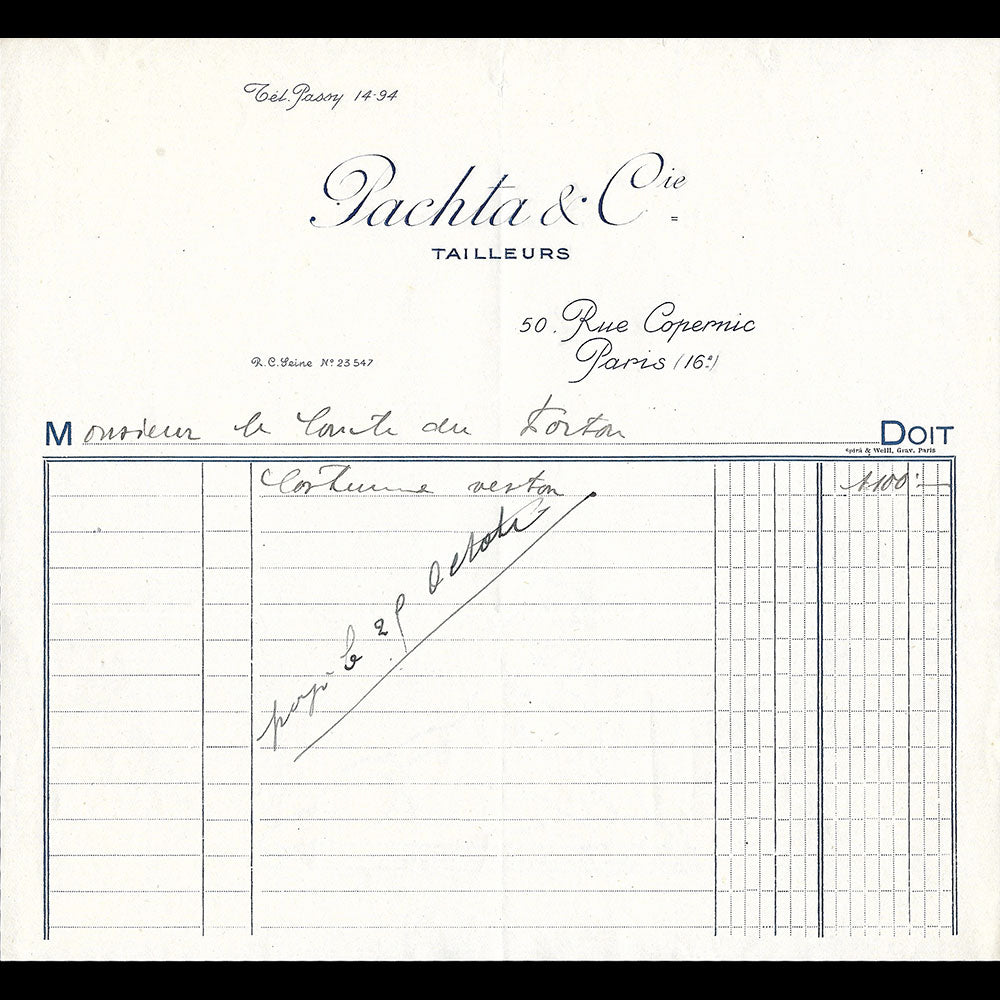 Tél. Passy 14-94
Pachta & Cie
TAILLEURS
50. Rue Copernic
Paris (16e)
R.C. Seine No 23547
Monsieur le Comte du Forton
DOIT
Spira & Weill, Grav. Paris
Costume veston 1100 -
payé le 29 Octobre